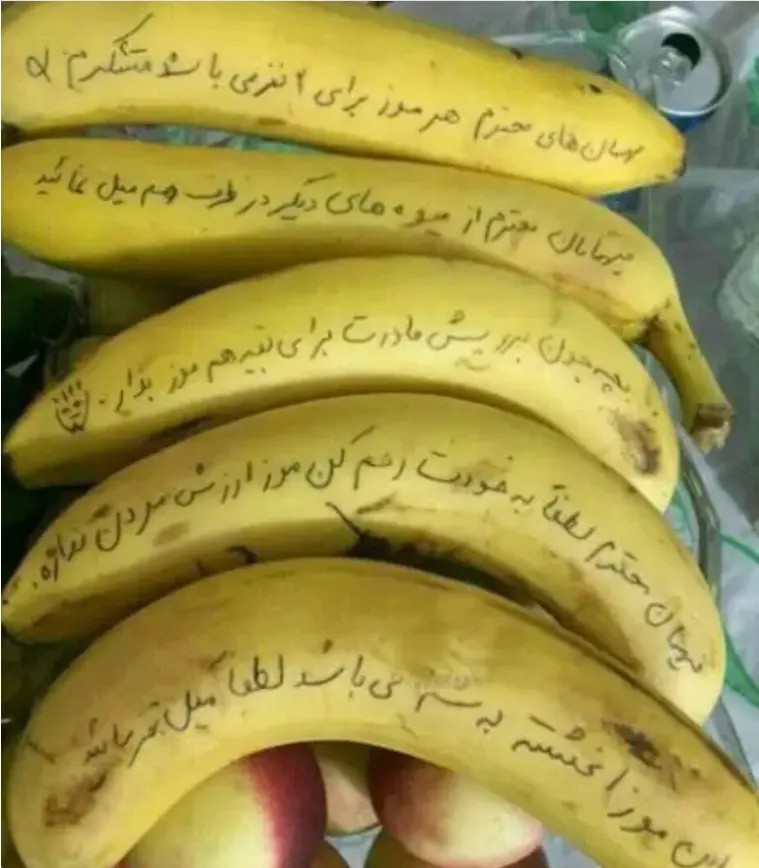 مهمان های محترم هر موز برای ۲ نفر می باشد متشکرم
میهمانان محترم از میوه های دیگر در ظرف هم میل نمائید
بچه جون بروپیش مادرت برای بقیه هم موز بذار.
میهمان محترم لطفاً به خودت رحم کن موز ارزش مردن نداره.
این موز آغشته به سم می باشد لطفاً میل نفرمائید